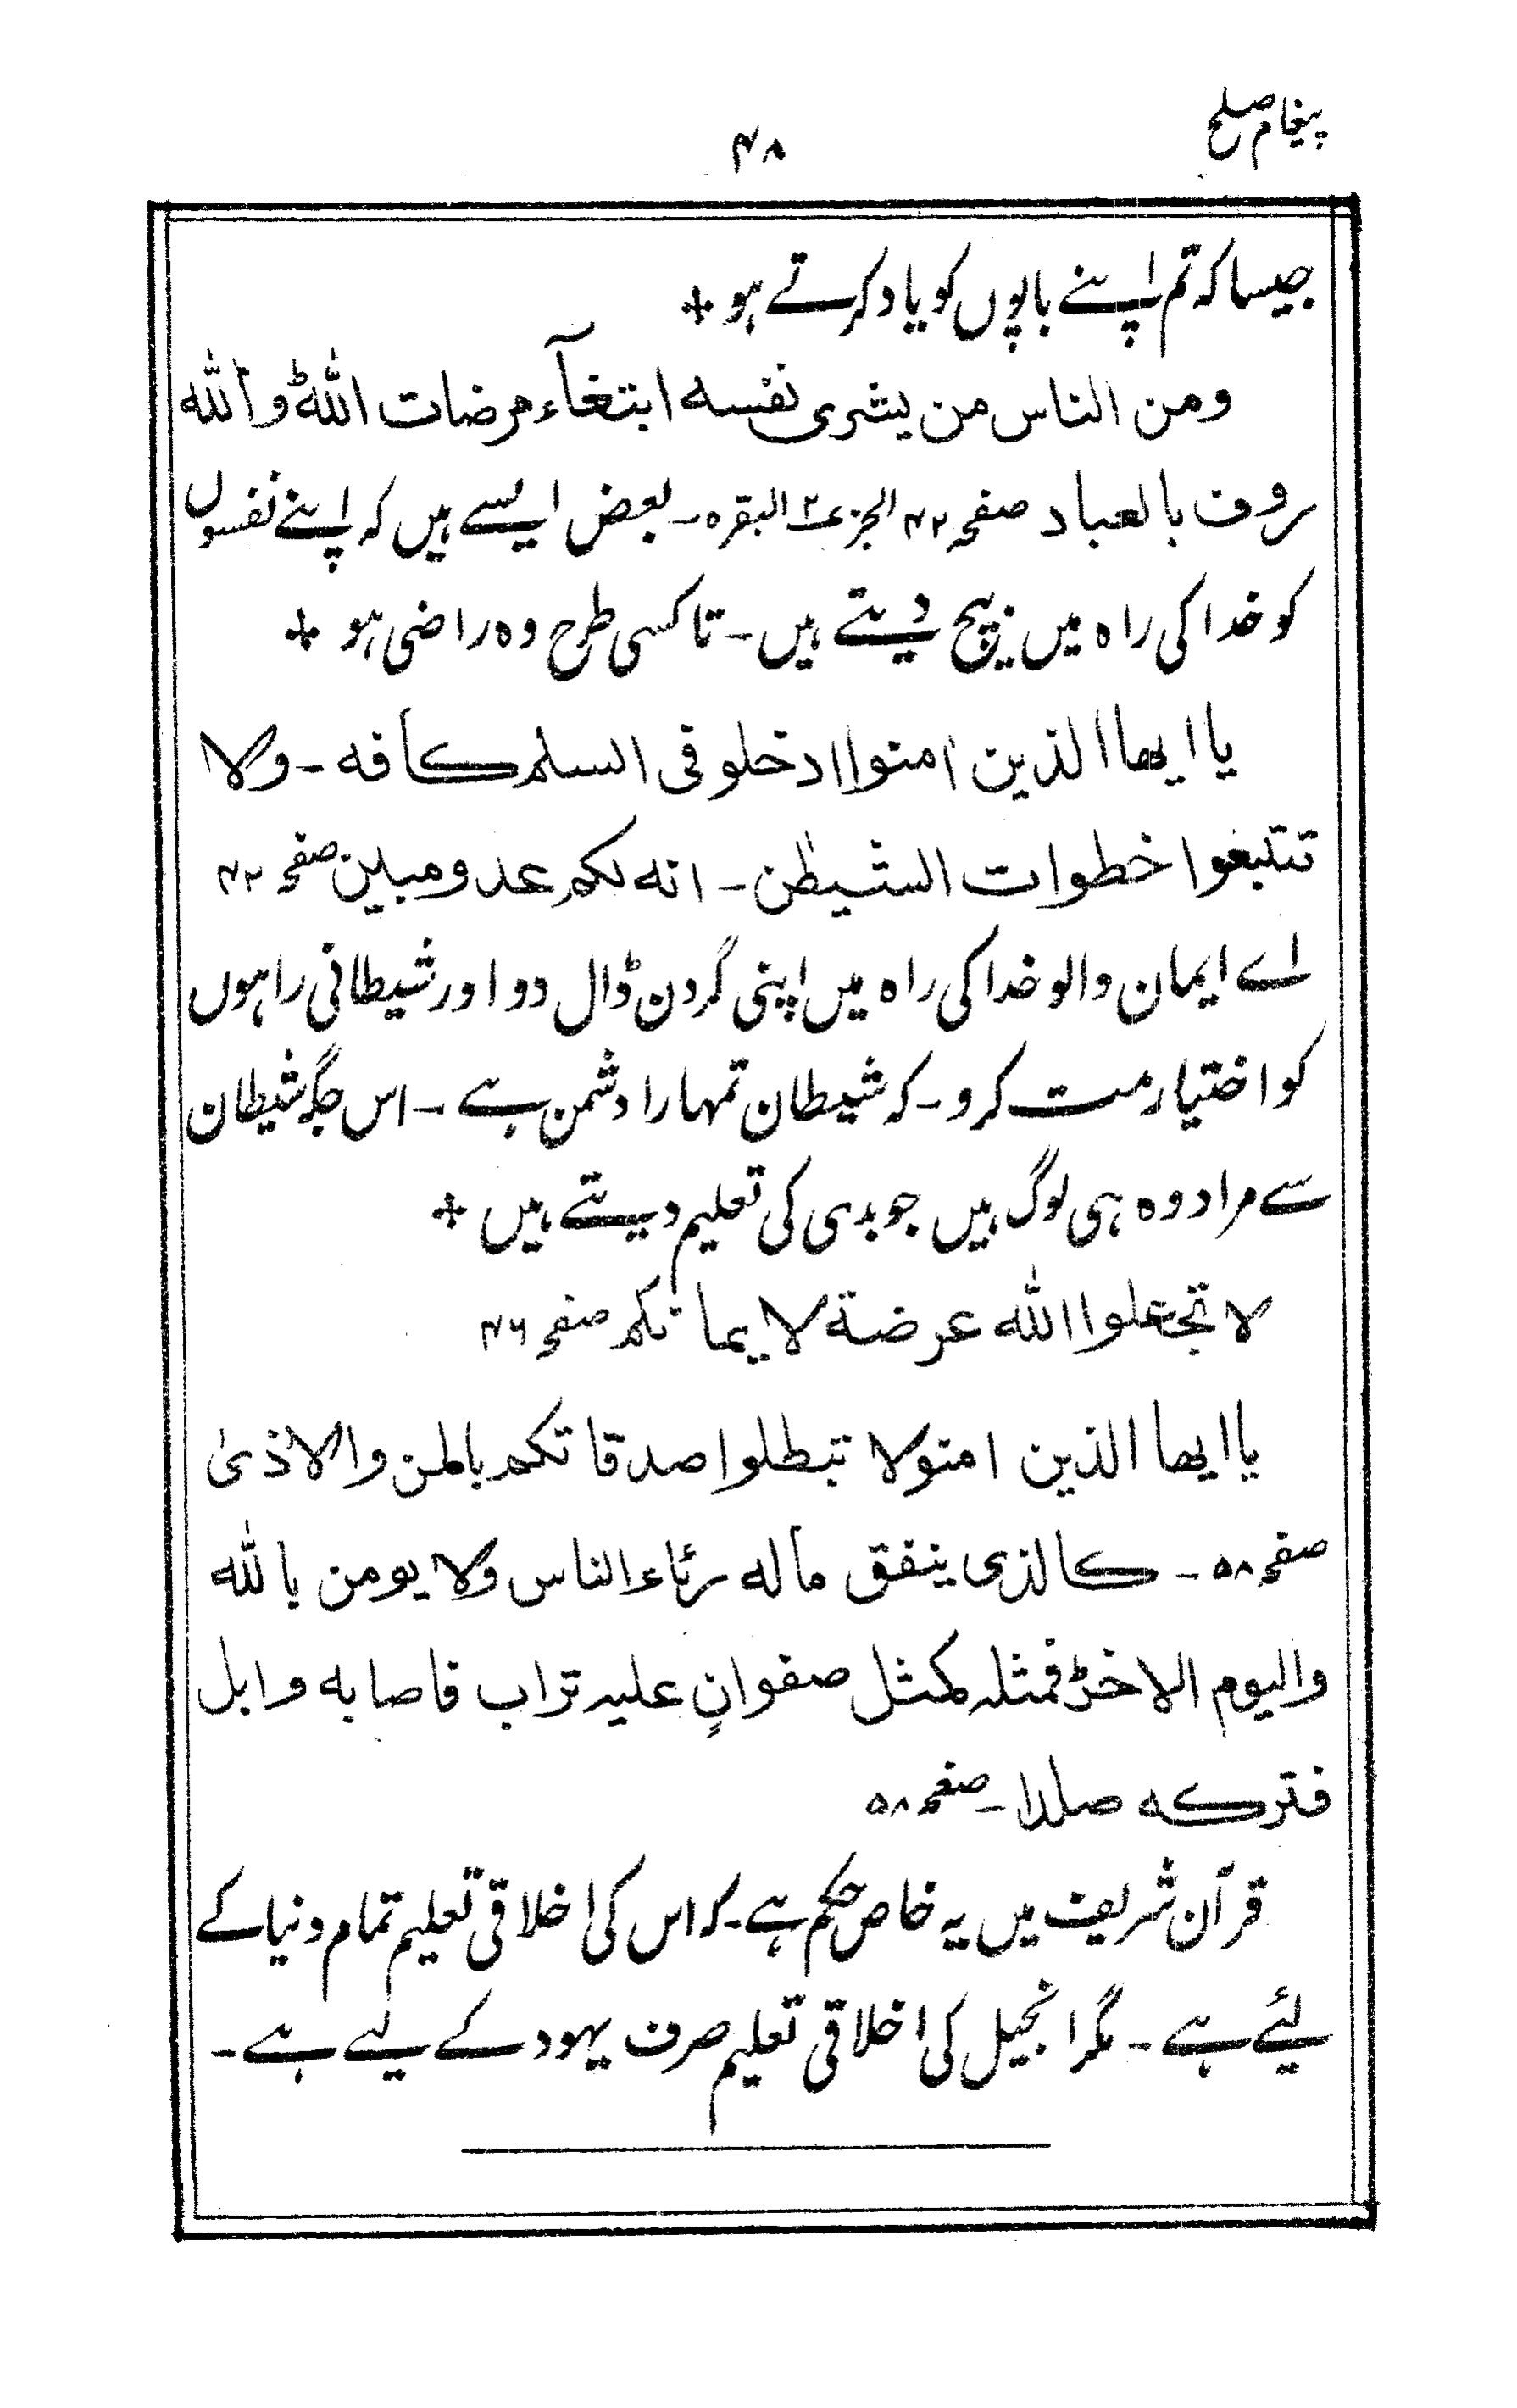 پیغام صلح
۴۸
جیسا کہ تم اپنے باپوں کو یاد کرتے ہو +
ومن الناس من یشری نفسہ ابتغآء مرضات اللہ ؕ واللہ
روف بالعباد صفحہ ۴۲ الجزء ۲ البقرہ ۔ بعض ایسے ہیں کہ اپنے نفسوں
کو خدا کی راہ میں بیچ دیتے ہیں ۔ تا کسی طرح وہ راضی ہو +
یا ایھا الذین امنوا ادخلو فی السلم کافہ ۔ ولا
تتبعوا خطوات الشیطٰن ۔ انہ لکم عدو مبین صفحہ ۴۲
اے ایمان والو خدا کی راہ میں اپنی گردن ڈال دو اور شیطانی راہوں
کو اختیار مت کرو ۔ کہ شیطان تمہارا دشمن ہے ۔ اس جگہ شیطان
سے مراد وہ ہی لوگ ہیں جو بدی کی تعلیم دیتے ہیں +
لا تجعلوا اللہ عرضۃ لایمانکم صفحہ ۴۶
یا ایھا الذین امنو لا تبطلوا صدقاتکم بالمن والاذیٰ
صفحہ ۵۸ ۔ کالذی ینفق مالہ رئاء الناس ولا یومن باللہ
والیوم الاخر ؕ فمثلہ کمثل صفوانٍ علیہ تراب فاصابہ وابل
فترکہ صلدا ۔ صفحہ ۵۸
قرآن شریف میں یہ خاص حکم ہے ۔ کہ اس کی اخلاقی تعلیم تمام دنیا کے
لئے ہے ۔ مگر انجیل کی اخلاقی تعلیم صرف یہود کے لیے ہے ۔